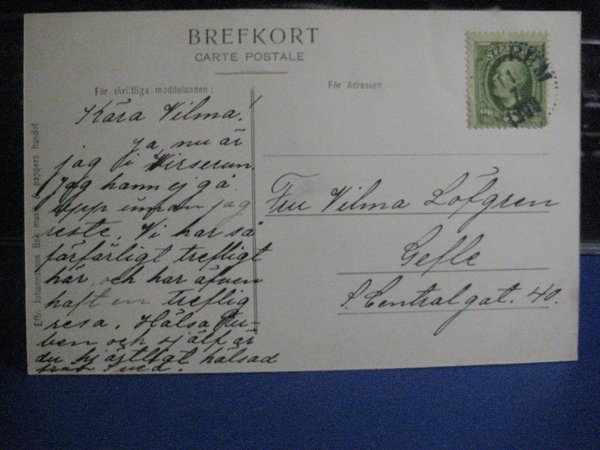 BREFKORT
CARTE POSTALE
För skriftliga meddelanden:
För Adressen
Kära Vilma!
Ja, nu är
jag i Virserum.
Jag hann ej gå
upp innan jag
reste. Vi har så
förfärligt trefligt
här, och har äfven
haft en treflig
resa. Hälsa Ru-
ben och själf är
du hjärtligt hälsad
från
Fru Vilma Löfgren
Gefle
S. Centralgat. 40.
Johanssons Bok musik o. pappers handel